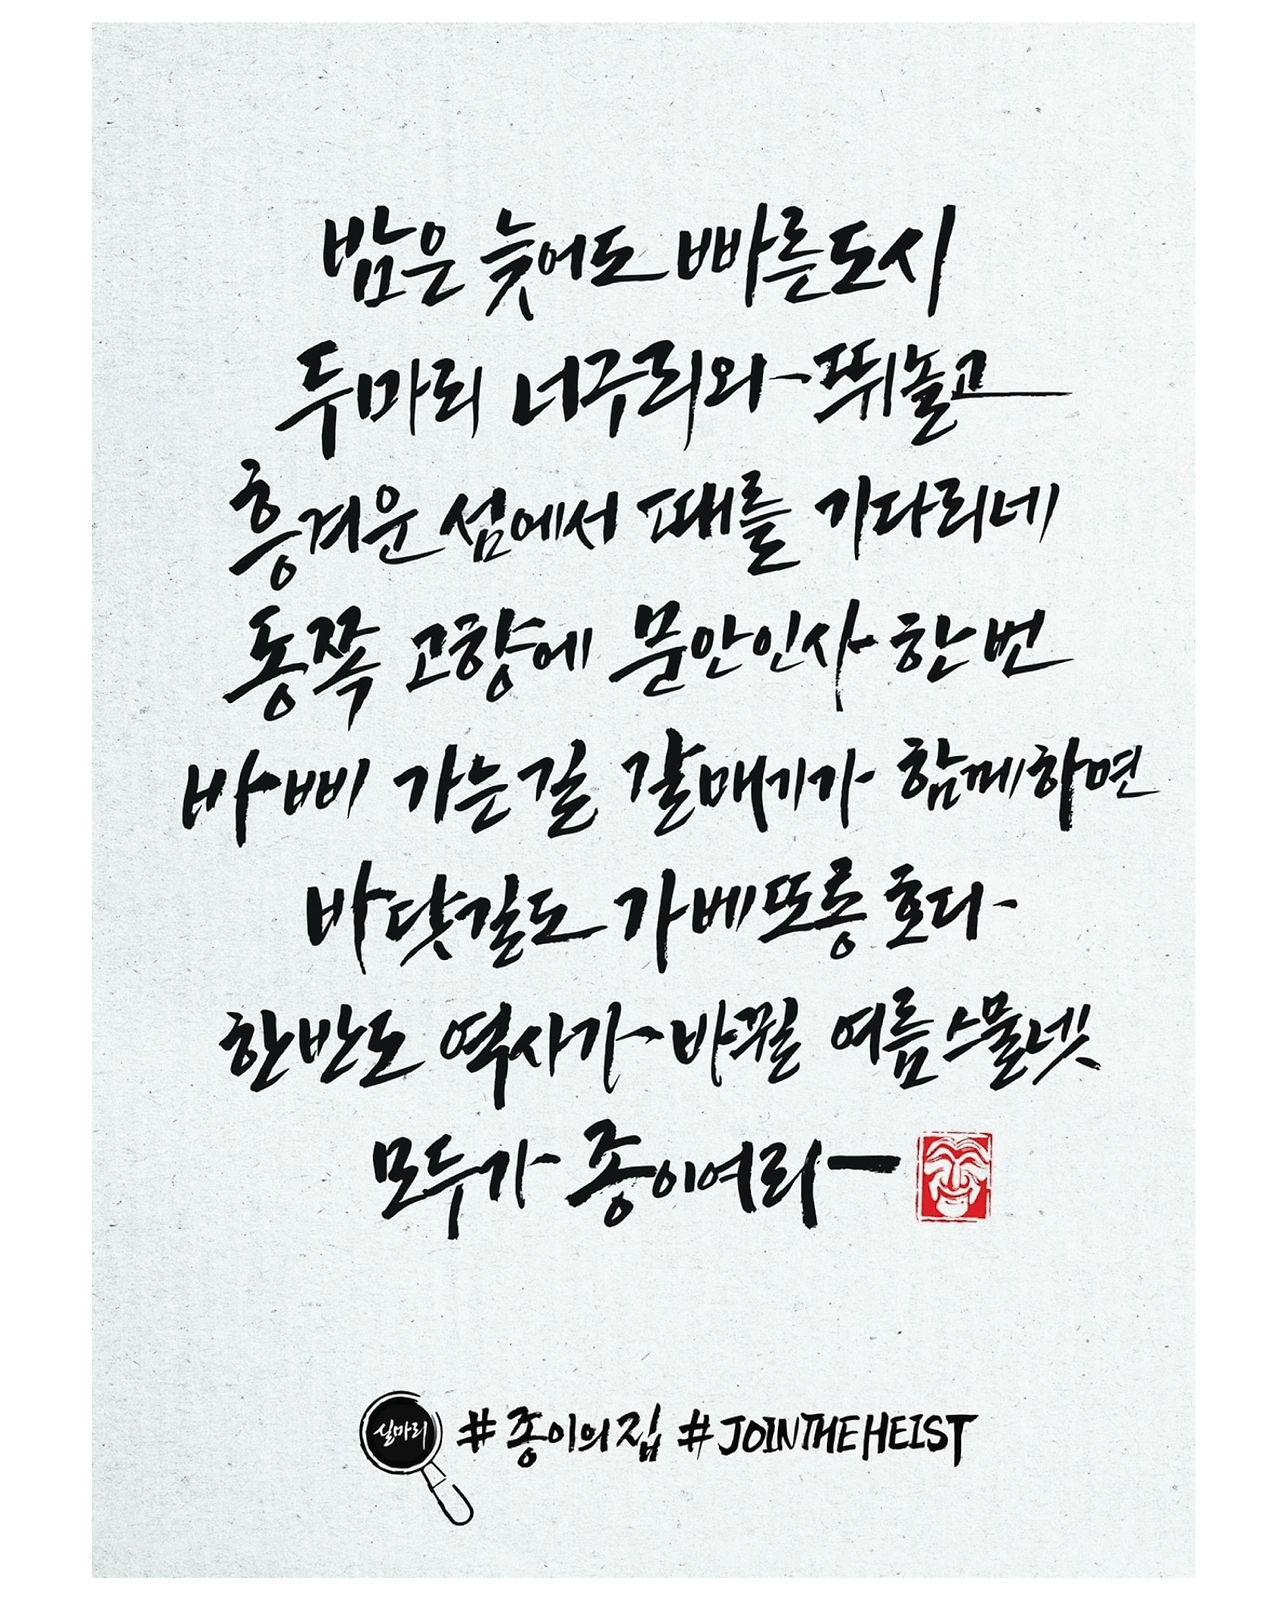 밤은 늦어도 빠른도시
두마리 너구리와 뛰놀고
흥겨운 섬에서 때를 기다리네
동쪽 고향에 문안인사 한번
바삐 가는길 갈매기가 함께하면
바닷길도 가베또롱 호다
한반도 역사가 바뀔 여름 스물넷
모두가 종이여라ㅡ
실마리 #종이의집 #JOINTHEHEIST